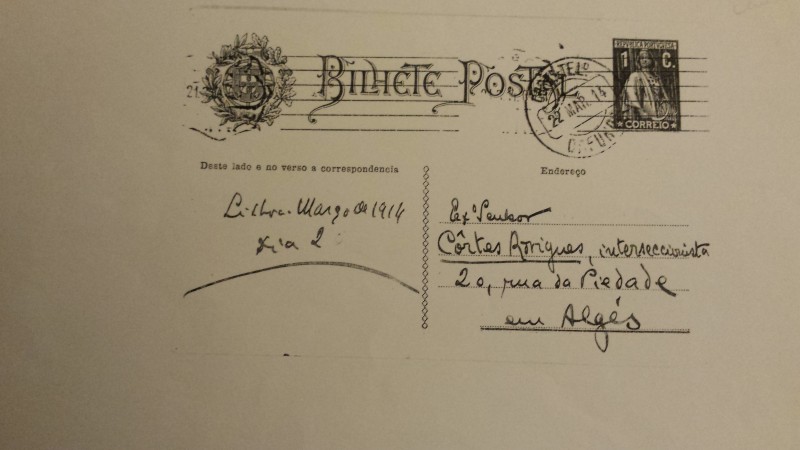 BILHETE POSTAL
REPUBLICA PORTUGUESA
1 C.
CORREIO
22 MAR. 14
DAFUNDO
Deste lado e no verso a correspondencia
Endereço
Lisboa. Março de 1914
Dia 2
Exº Senhor
Côrtes Rodrigues, interseccionista
2 e, rua da Piedade
em Algés